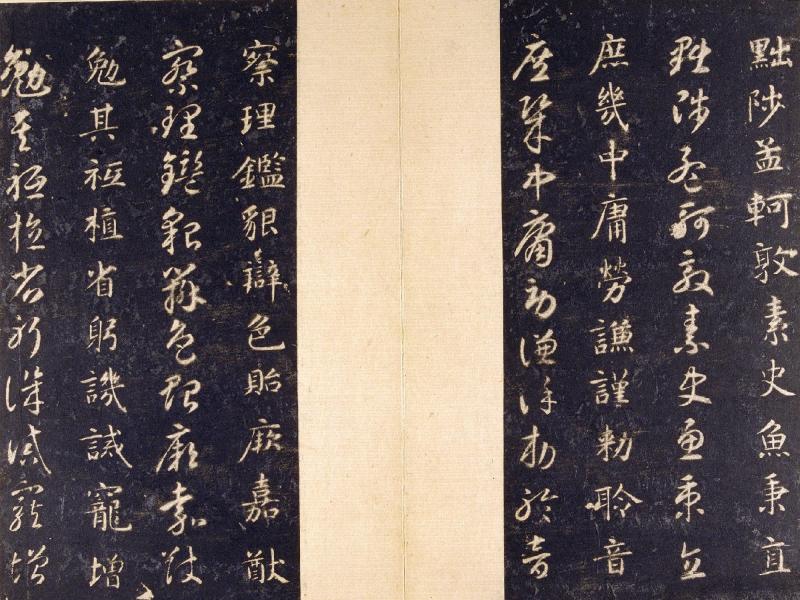 黜陟孟軻敦素史魚秉直
黜陟孟軻敦素史魚秉直
庶幾中庸勞謙謹勅聆音
庶幾中庸勞謙謹勅聆音
察理鑑貌辯色貽厥嘉猷
察理鑑貌辯色貽厥嘉猷
勉其祗植省躬譏誡寵增
勉其祗植省躬譏誡寵增